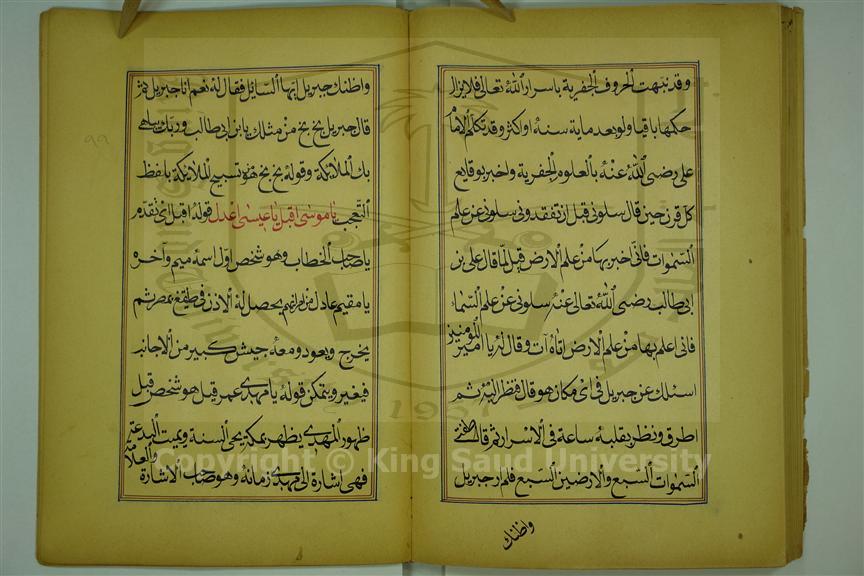 وقد نبهت الحروف الجفرية باسرار الله تعالى فلا يزال
حكمها باقيا ولو بعد ماية سنة او اكثر وقد تكلم الامام
على رضى الله عنه بالعلوم الجفرية واخبر بوقايع
كل قرن حين قال سلونى قبل ان تفقدونى سلونى عن علم
السموات فانى اخبر بها من علم الارض قيل لما قال على بن
ابى طالب رضى الله تعالى عنه سلونى عن علم السماء
فانى اعلم بها من علم الارض اتاه آت وقال له يا امير المومنين
اسئلك عن جبريل فى اى مكان هو قال فنظر اليه ثم
اطرق ونظر بقلبه ساعة فى الاسرار ثم قال طفت
السموات السبع والارضين السبع فلم ار جبريل
واظنك
واظنك جبريل ايها السايل فقال له نعم انا جبريل ثم
قال جبريل بخ بخ من مثلك يا ابن ابى طالب وربك يباهى
بك الملايكة وقوله بخ بخ هذه تسبيح الملايكة بلفظ
التعجب يا موسى اقبل يا عيسى اعدل قوله اقبل اى تقدم
يا صاحب الخطاب وهو شخص اول اسمه ميم وآخره
يا مقيم عادل من امرائهم يحصل له الاذن فى مصر ثم
يخرج ويعود ومعه جيش كبير من الاجانب
فيغير ويتمكن قوله يا مهدى عمر قيل هو شخص قبل
ظهور المهدى يظهر بمكة يحى السنة ويميت البدعة
فهى اشارة الى مهدى زمانه وهو صاحب الاشارة والعلامة
٩٩
1957
Copyright © King Saud University